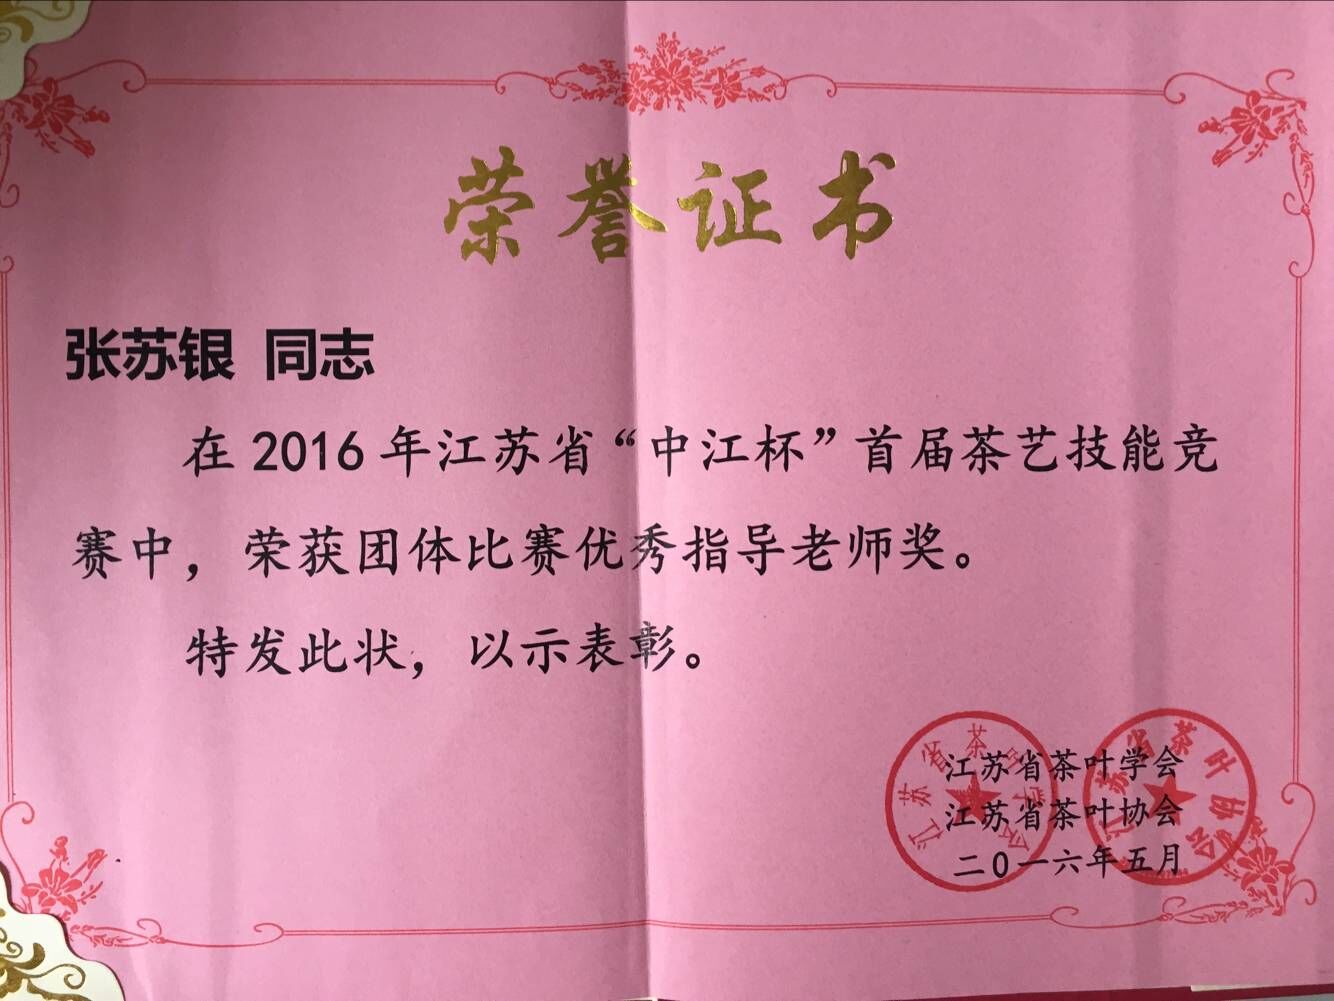 荣誉证书
张苏银 同志
在 2016 年江苏省“中江杯”首届茶艺技能竞
赛中，荣获团体比赛优秀指导老师奖。
特发此状，以示表彰。
江苏省茶叶学会
江苏省茶叶协会
二〇一六年五月
江苏省茶叶学会
江苏省茶叶协会